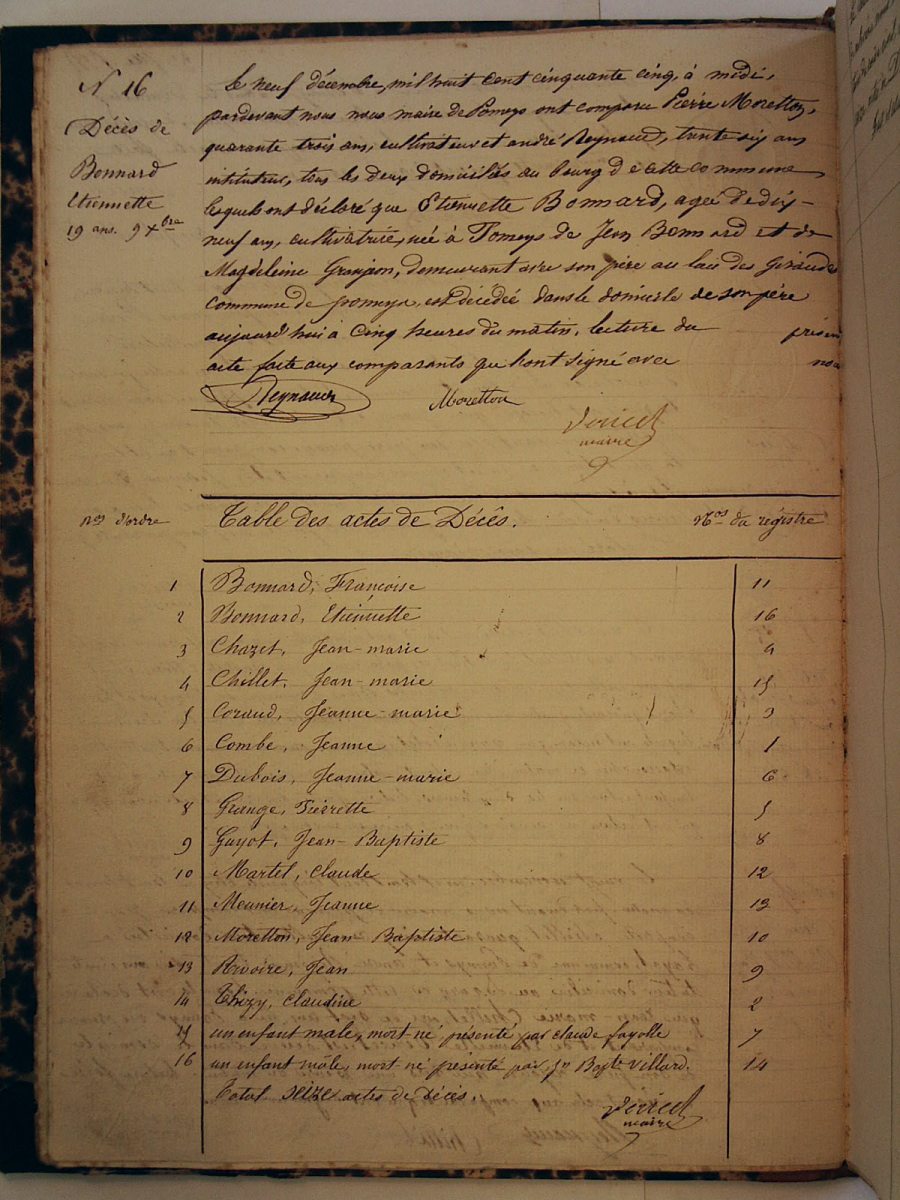 N° 16
Décès de
Bonnard
Etiennette
19 ans. 9 Xbre
Le neuf décembre, mil huit cent cinquante cinq, à midi,
pardevant nous maire de Pomeys ont comparu Pierre Moretton,
quarante trois ans, cultivateur et andré Reynaud, trente six ans
instituteur, tous les deux domiciliés au bourg de cette commune
lesquels ont déclaré que Etiennette Bonnard, agée de dix-
neuf ans, cultivatrice, née à Pomeys de Jean Bonnard et de
Magdeleine Granjon, demeurant avec son père au lieu des Girauds
commune de pomeys, est décédée dans le domicile de son père
aujourd'hui à Cinq heures du matin, lecture du présen
acte faite aux comparants qui l'ont signé avec nou
Reynaud Moretton
maire
nos d'ordre Table des actes de Décès. Nos du régistre
1 Bonnard, Francoise 11
2 Bonnard, Etiennette 16
3 Chazet, Jean-marie 4
4 Chillet, Jean-marie 15
5 Coraud, Jeanne-marie 3
6 Combe, Jeanne 1
7 Dubois, Jeanne-marie 6
8 Grange, Pierrette 5
9 Guyot, Jean-Baptiste 8
10 Martel, Claude 12
11 Meunier, Jeanne 13
12 Moretton, Jean Baptiste 10
13 Rivoire, Jean 9
14 Thizy, Claudine 2
15 un enfant mâle, mort-né présenté par claude fayolle 7
16 un enfant mâle, mort-né présenté par Jn Bapte Villard. 14
Total seize actes de Décès.
maire